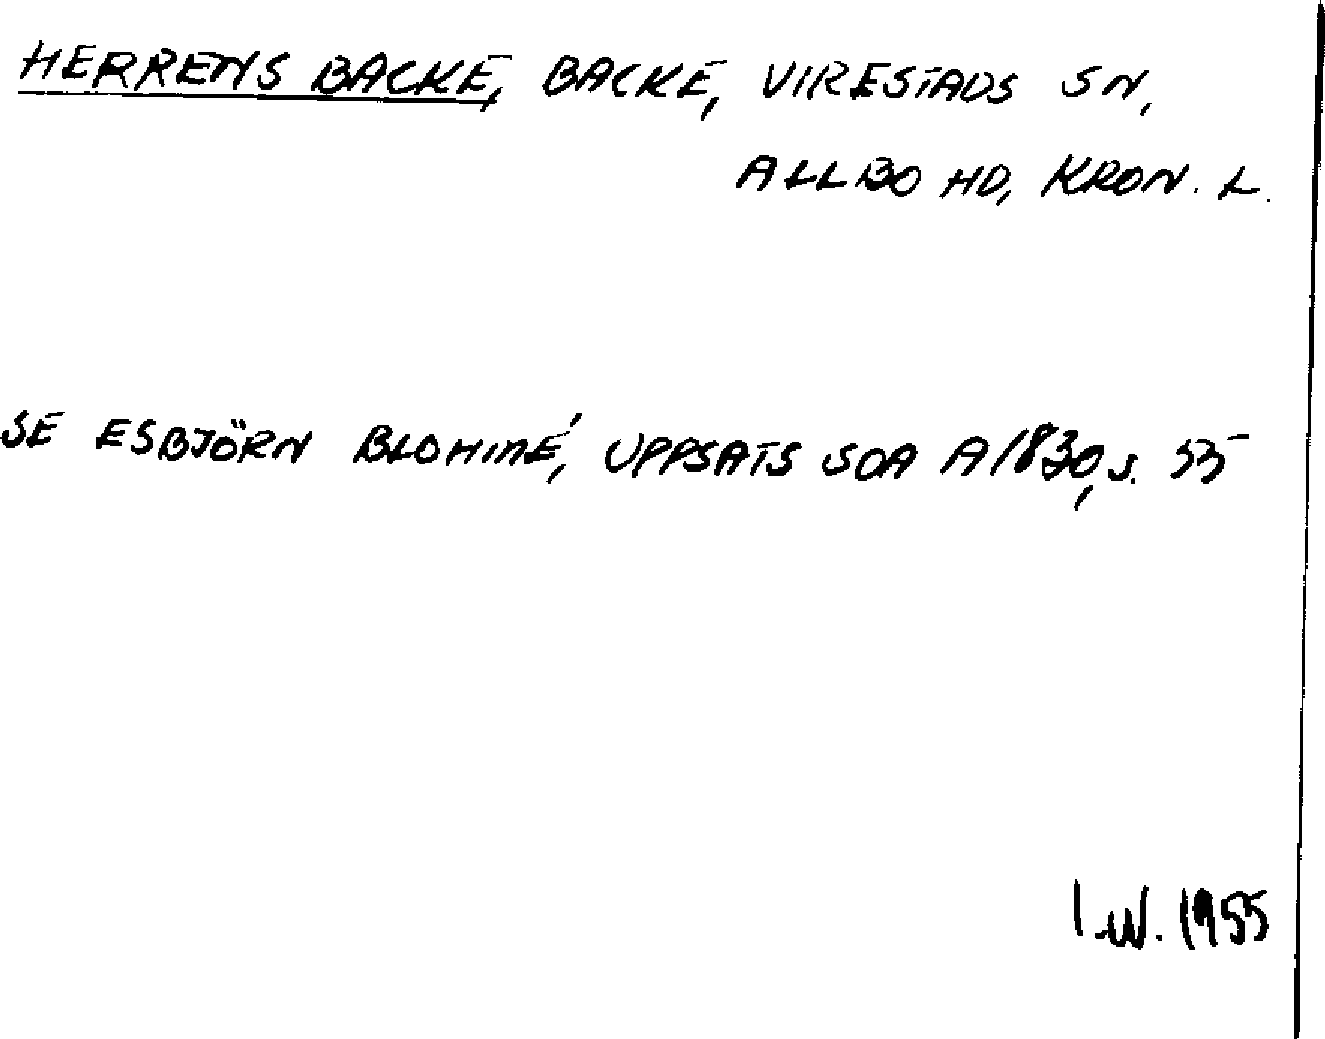 HERRENS BACKE, BACKE, VIRESTADS SN,
ALLBO HD, KRON. L.
SE ESBJÖRN BLOHMÉ, UPPSATS SOA A1830, S. 55
I.W. 1955